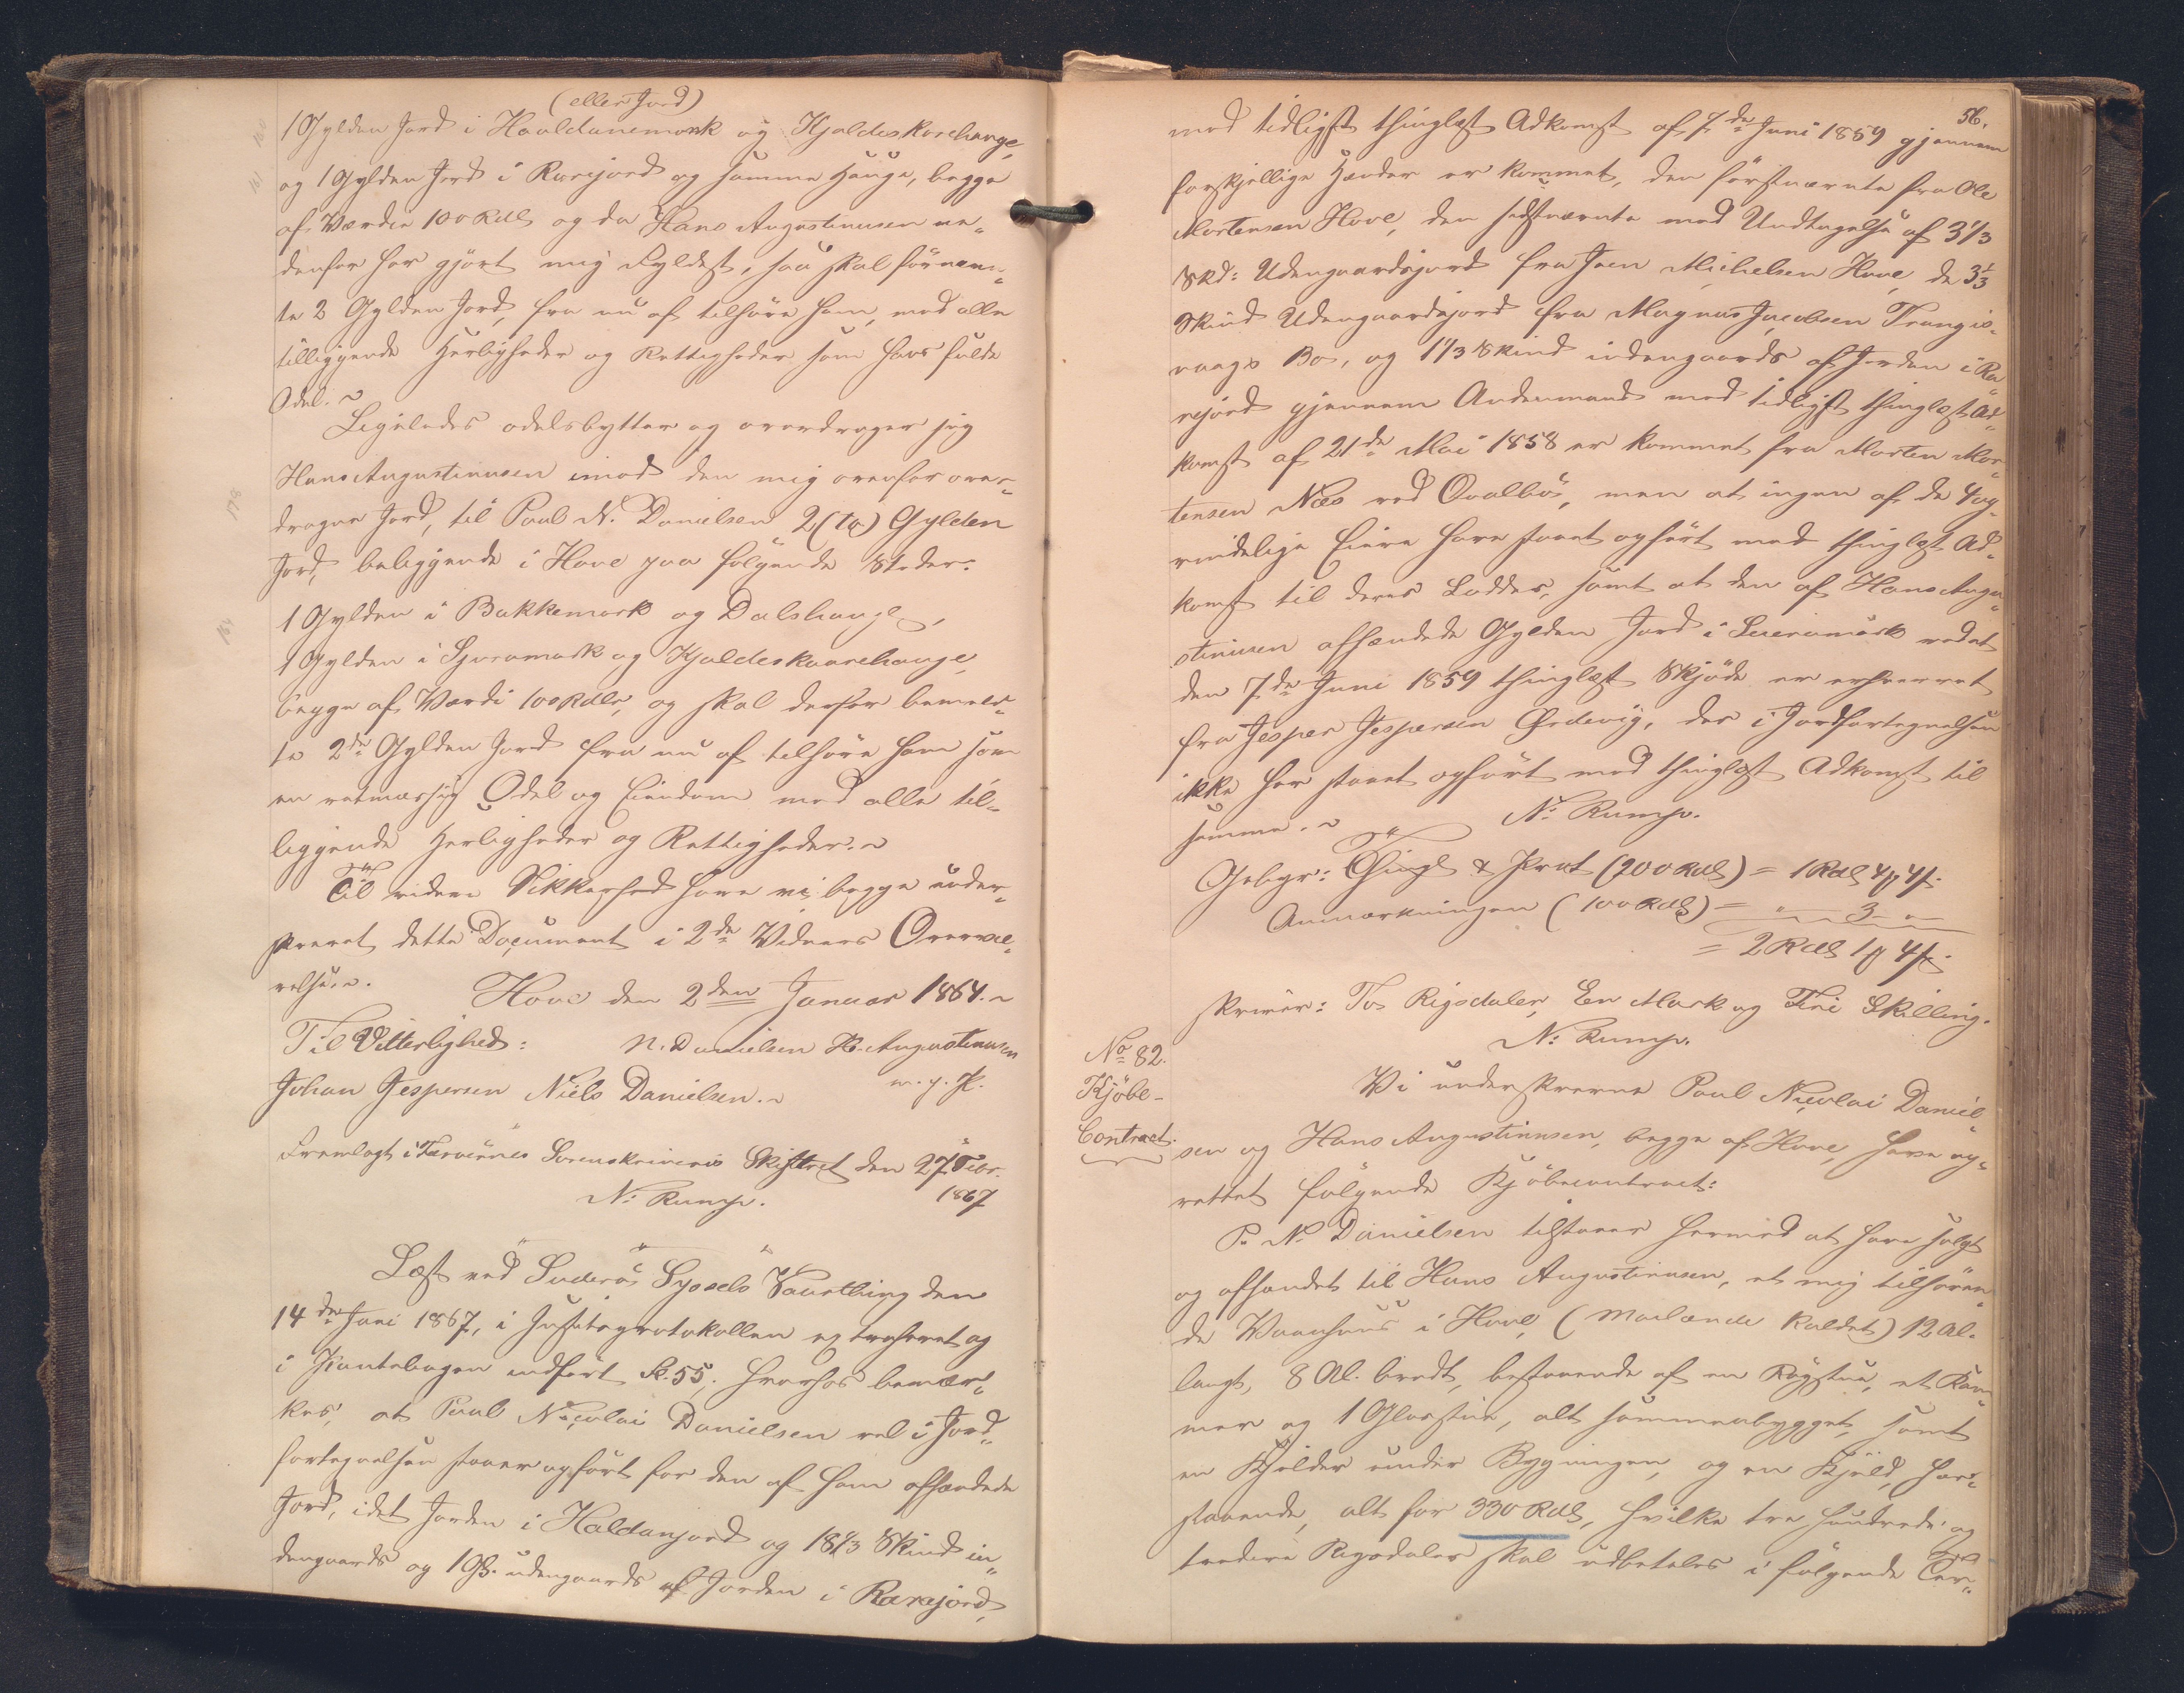 (eller Jord)
1 Gylden Jord i Haaldanemark og Kjaldeskorehauge,
160
161
og 1 Gylden Jord i Rarejord og samme Hauge, begge
af Værdie 100 Rdl, og da Hans Augustinusen ne„
denfor har gjört mig Fyldest, saa skal förnæv„
te 2 Gylden Jord, fra nu af tilhöre ham, med alle
tilliggende Herligheder og Rettigheder som hans fulde
Odel. ~
Ligeledes odelsbytter og overdrager jeg
Hans Augustinusen imod den mig ovenfor over„
178
dragne Jord, til Poul N. Danielsen 2 (to) Gylden
Jord, beliggende i Hove paa fölgende Steder:
1 Gylden i Bakkemark og Dalshauge,
164
1 Gylden i Sjuramark og Kjaldeskaarehauge,
begge af Værdi 100 Rdlr, og skal derfor bemeld„
te 2de Gylden Jord fra nu af tilhöre ham som
en retmæssig Odel og Eiendom med alle til„
liggende Herligheder og Rettigheder. ~
Til videre Sikkerhed have vi begge under„
skrevet dette Document i 2de Vidners Overvæ„
relse. ~.
Hove den 2den Januar 1864. ~
Til Vitterlighed: N. Danielsen H. Augustinusen
Johan Jespersen Niels Danielsen. ~ m. f. P.
Fremlagt i Færöernes Sorenskriveris Skifteret den 27 Febr.
1867
N: Rump.
Læst ved Suderøe Syssels Vaarthing den
14de Juni 1867, i Justitsprotokollen extraheret og
i Pantebogen indfört S. 55, hvorhos bemær„
kes, at Poul Nicolai Danielsen vel i Jord„
fortegnelsen staaer opfört for den af ham afhændede
Jord, idet Jorden i Haldanjord og 18 1/3 Skind in„
dengaards og 1 G. udengaards af Jorden i Rarejord,
56.
med tidligst thinglæst Adkomst af 7de Juni 1859 gjennem
forskjellige Hænder er kommet, den förstnævnte fra Ole
Mortensen Hove, den sidstnævnte med Undtagelse af 3 1/3
Skd: Udengaardsjord fra Joen Michelsen Hove, de 3 1/3
Skind Udengaardsjord fra Magnus Jacobsen Trangis„
vaags Bo, og 1 1/3 Skind indengaards af Jorden i Ra„
rejord gjennem Andenmand med tidligst thinglæst Ad„
komst af 21de Mai 1858 er kommet fra Morten Mor„
tensen Næs ved Qvalbö, men at ingen af de
Eiere have staaet opfört med thinglæst Ad„
komst til deres Lodder, samt at den af Hans Augu„
stinusen afhændede Gylden Jord i Sueramark ved et
den 7de Juni 1859 thinglæst Skjöde er erhvervet
fra Jesper Jespersen Ördevig, der i Jordfortegnelsen
ikke har staaet opfört med thinglæst Adkomst til
samme. ~
N: Rump.
Gebyr: Thingl & Prot (200 Rdl) = 1 Rdl 4 ₰ 4 ß.
Anmærkningen (100 Rdl) = „ — 3 — „ —
= 2 Rdl 1 ₰ 4 ß.
skriver: To Rigsdaler, En Mark og Fire Skilling.
N: Rump.
No 82.
Kjöbe-
Contract.
Vi underskrevne Poul Nicolai Daniel„
sen og Hans Augustinusen, begge af Hove, have op„
rettet fölgende Kjöbecontract:
P. N. Danielsen tilstaaer hermed at have solgt
og afhændet til Hans Augustinusen, et mig tilhören„
de Vaanhuus i Hove, (Morlænde kaldet) 12 Al.
langt, 8 Al. bredt, bestaaende af en Rögstue, et Kam„
mer og 1 Glasstue, alt sammenbygget, samt
en Kjelder under Bygningen, og en Kjeld, her„
staaende, alt for 330 Rdl, hvilke tre hundrede og
tredive Rigsdaler skal udbetales i fölgende Ter„